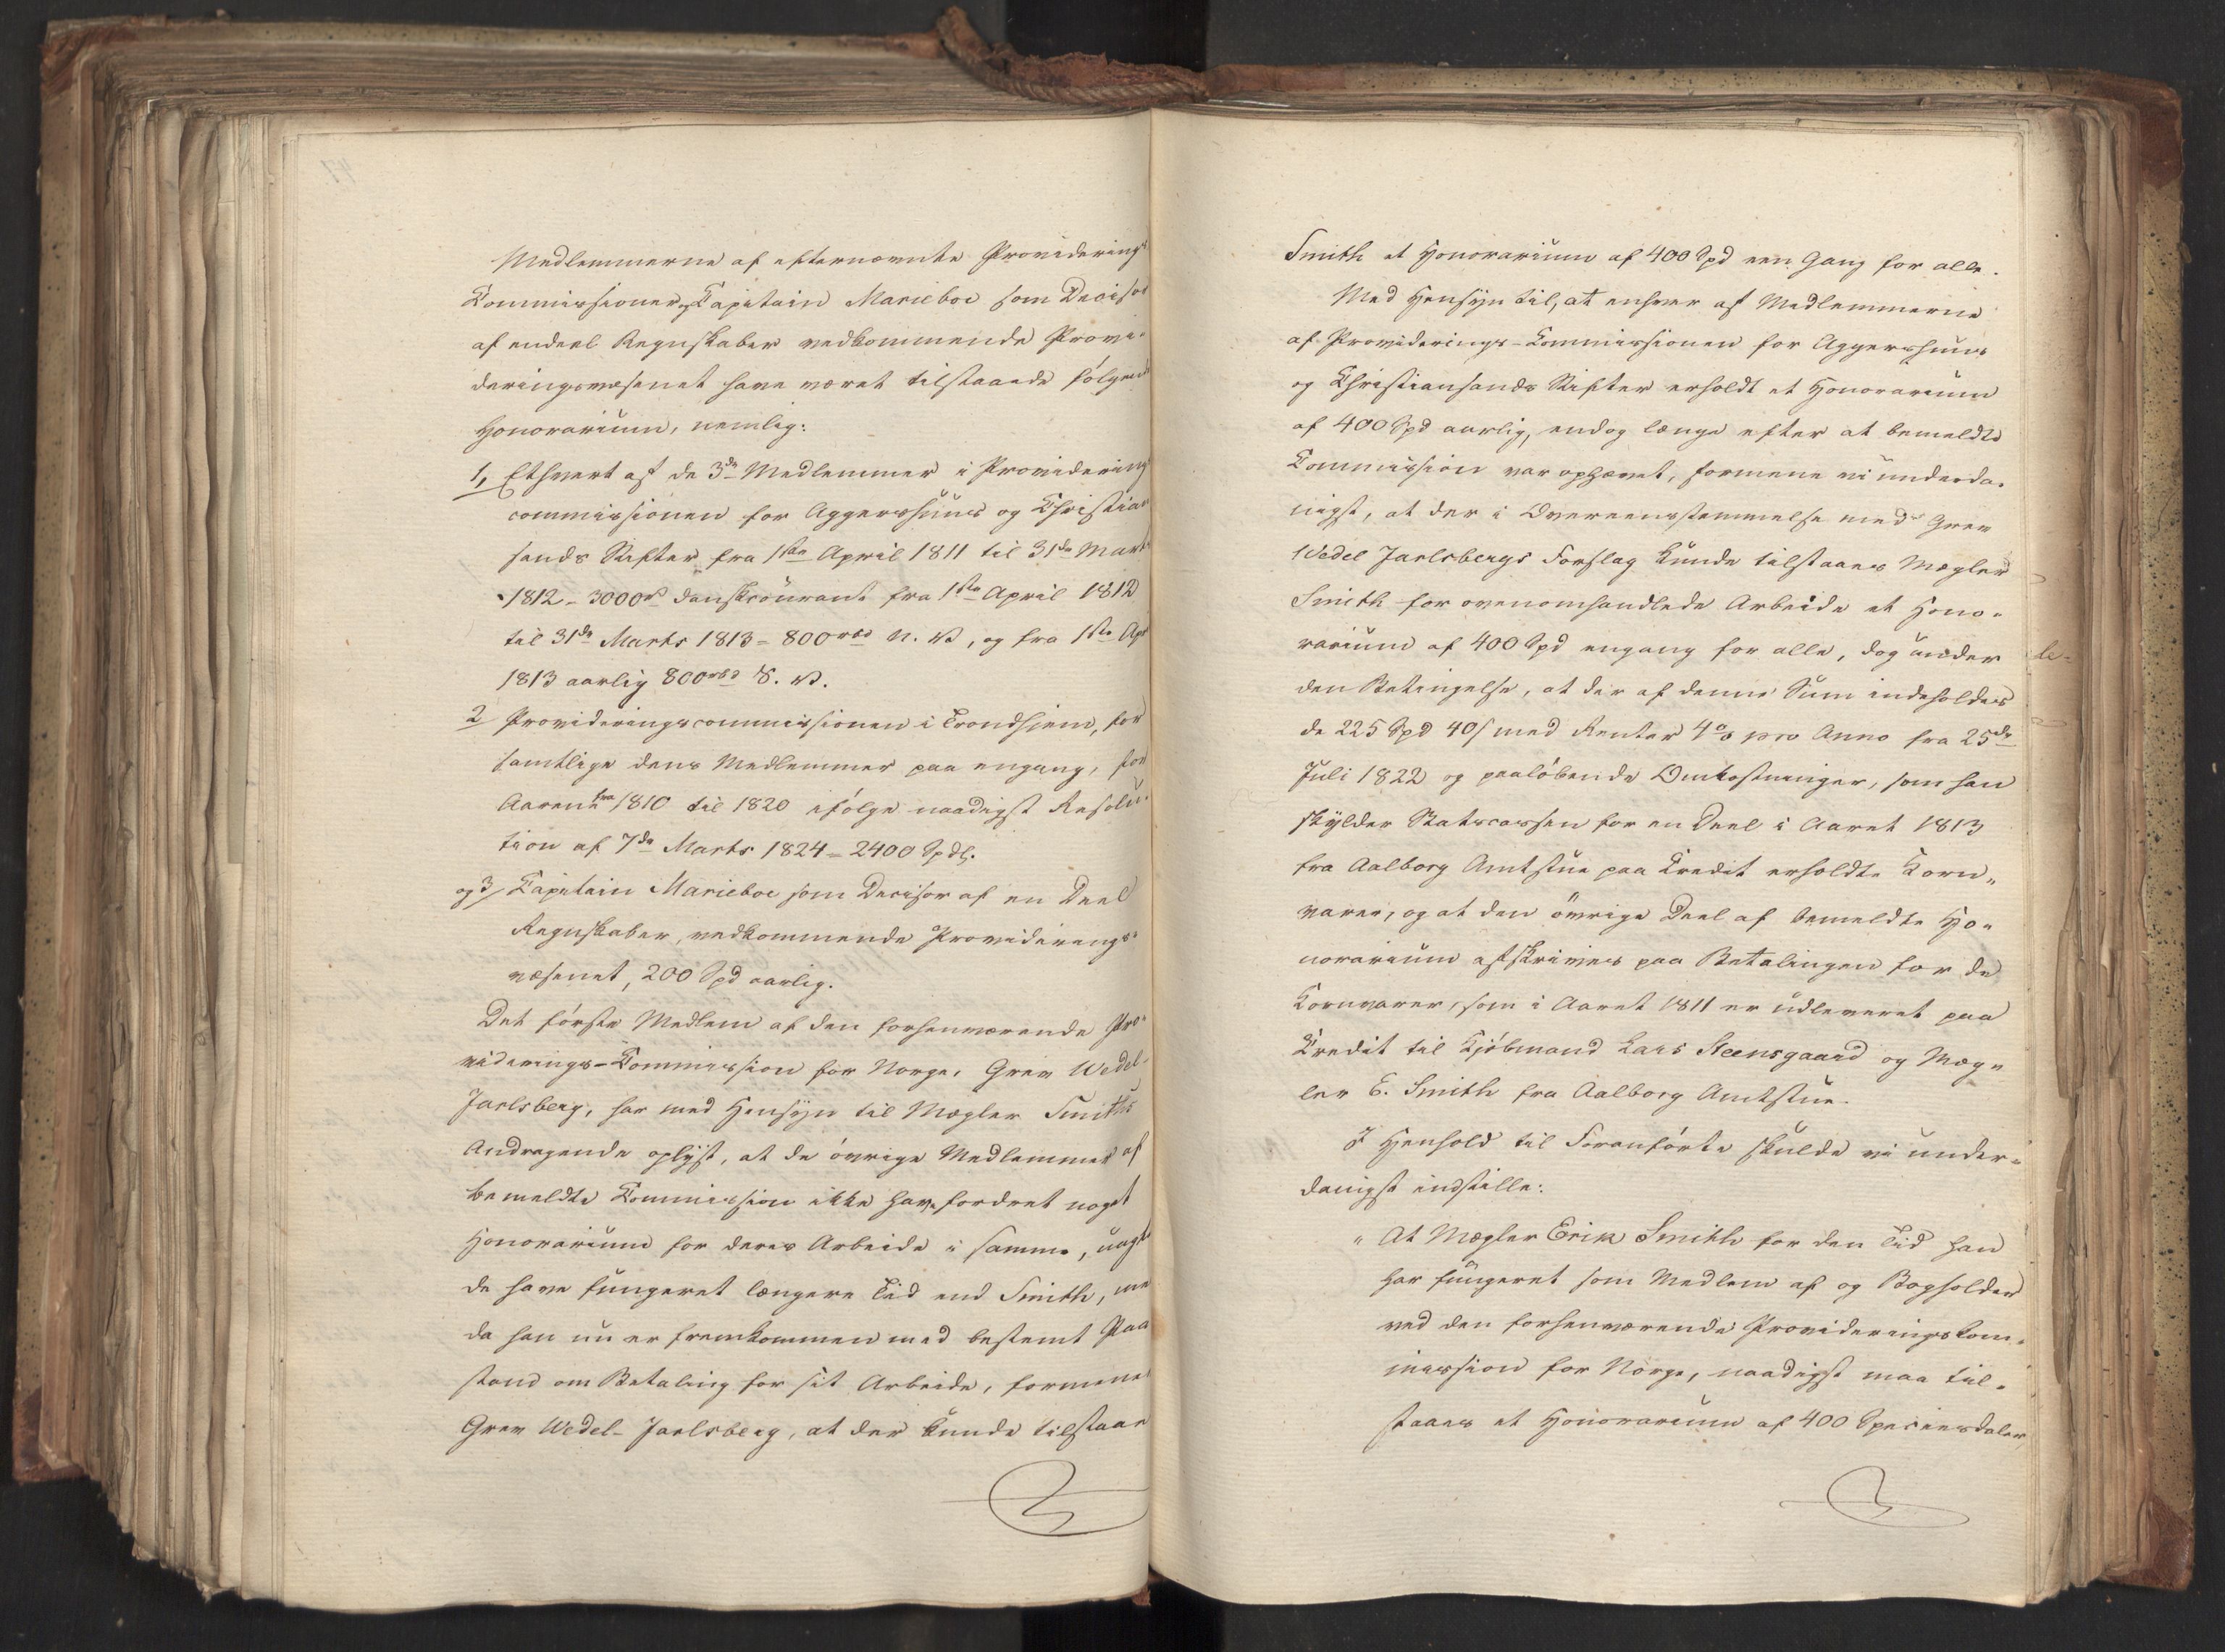 Medlemmerne af efternævnte Providerings
Commissioner og Capitain Marieboe som Decisor
af endeel Regnskaber vedkommende Provi-
deringsvæsenet have været tilstaaede følgende
Honorarium, nemlig:
1, Ethvert af de 3de Medlemmer i Providerings
commissionen for Aggershuus og Christian
sands Stifter fra 1ste April 1811 til 31de Marts
1812 - 3000 rd danskcourant fra 1ste April 1812
til 31de Marts 1813 = 800 rbd N. V, og fra 1ste Apr
1813 aarlig 800 rbd S. V.
2 Provideringscommissionen i Trondhjem, for
samtlige dens Medlemmer paa engang, for
Aarene fra 1810 til 1820 ifølge naadigst Resolu-
tion af 7de Marts 1824 = 2400 Spdl.
og 3, Capitain Marieboe som Decisor af en Deel
Regnskaber, vedkommende Providerings-
væsenet, 200 Spd aarlig.
Det første Medlem af den forhenværende Pro-
viderings-Commission for Norge, Grev Wedel-
Jarlsberg, har med Hensyn til Mægler Smiths
Andragende oplyst, at de øvrige Medlemmer af
bemeldte Commission ikke have fordret noget
Honorarium for deres Arbeide i samme, uagtet
de have fungeret længere Tid end Smith, men
da han nu er fremkommen med bestemt Paa
stand om Betaling for sit Arbeide, formener
Grev Wedel-Jarlsberg, at der kunde tilstaaes
Smith et Honorarium af 400 Spd een Gang for alle.
Med Hensyn til, at enhver af Medlemmerne
af Providerings-Commissionen for Aggershuus
og Christiansands Stifter erholdt et Honorarium
af 400 Spd aarlig, endog længe efter at bemeldte
Commission var ophævet, formene vi underda-
nigst, at der i Overeensstemmelse med Grev
Wedel Jarlsbergs Forslag kunde tilstaaes Mægler
Smith for ovenomhandlede Arbeide et Hono-
rarium af 400 Spd engang for alle, dog under
den Betingelse, at der af denne Sum indeholdes
de 225 Spd 40 s med Renter 4 % pro Anno fra 25de
Juli 1822 og paaløbende Omkostninger, som han
skylder Statscassen for en Deel i Aaret 1813
fra Aalborg Amtstue paa Credit erholdte Korn-
varer, og at den øvrige Deel af bemeldte Ho-
norarium afskrives paa Betalingen for de
Kornvarer, som i Aaret 1811 er udleveret paa
Credit til Kjøbmand Lars Steensgaard og Mæg-
ler E. Smith fra Aalborg Amtstue.
I Henhold til Foranførte skulde vi under-
danigst indstille:
"At Mægler Erik Smith for den Tid han
har fungeret som Medlem af og Bogholder
ved den forhenværende Provideringskom-
mission for Norge, naadigst maa til-
staaes et Honorarium af 400 Speciesdaler,